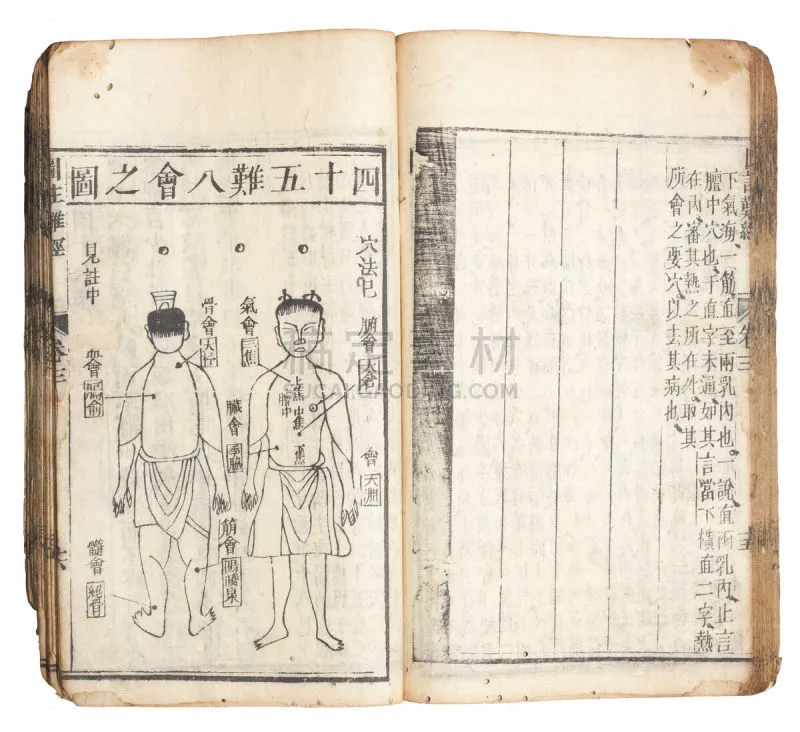 下氣海一筋直至兩乳內也一說直兩乳內止言
膻中穴也于直字未通如其言當下橫直二字熱
在內審其熱之所在然取其
所會之要穴以去其病也
卷三
四十五難八會之圖
穴法已
腑會
會
天淵
氣會
三焦
上焦
中焦
膻中
臟會
季脇
骨會
筋會
陽陵泉
見註中
血會
膈俞
髓會
絕骨
圖註難經
卷三
稿定素材
SUCAI.GAODING.COM